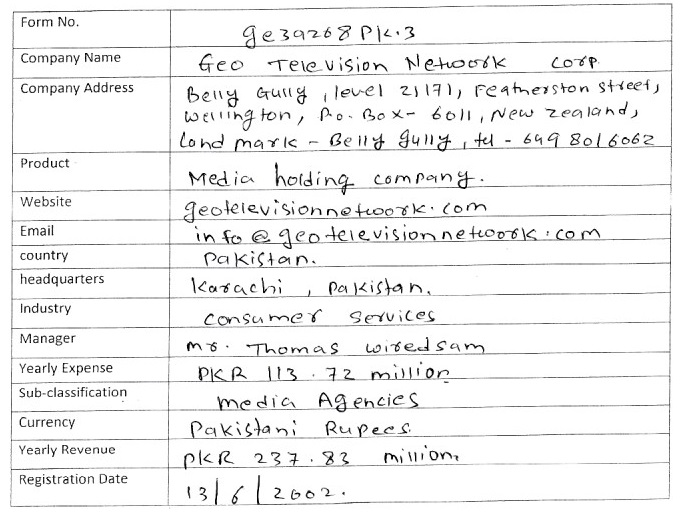 Form No. ge39268PK.3
Company Name Geo Television Network Corp
Company Address Belly Gully, level 21171, Featherston street,
wellington, P.o. Box- 6011, New zealand,
Land mark - Belly gully, tel - 649 8016062
Product Media holding company.
Website geotelevisionnetwork.com
Email info@geotelevisionnetwork.com
country Pakistan.
headquarters Karachi, Pakistan.
Industry Consumer Services
Manager mr. Thomas wiredsam
Yearly Expense PKR 113.72 million
Sub-classification media Agencies
Currency Pakistani Rupees.
Yearly Revenue PKR 237.83 million.
Registration Date 13/6/2002.